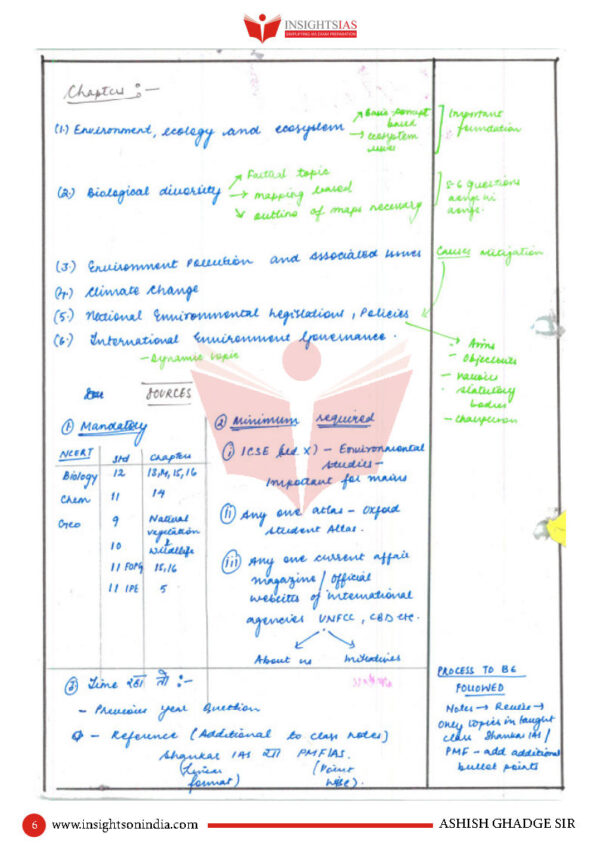 INSIGHTSIAS
SIMPLIFYING IAS EXAM PREPARATION
Chapters :-
(1.) Environment, ecology and ecosystem
→ Basic concept based
→ ecosystem
Important foundation
(2.) Biological diversity
→ Factual topic
→ mapping based
→ outline of maps necessary
5-6 questions
(3.) Environment Pollution and Associated Issues
Causes mitigation
(4.) Climate Change
(5.) National Environmental legislations, Policies
(6.) International Environment Governance.
- Dynamic topic
→ Aims
- Objectives
- various
statutory
bodies
- chairperson
SOURCES
① Mandatory
NCERT Std Chapters
Biology 12 13,14,15,16
Chem 11 14
Geo 9 Natural vegetation & wildlife
10
11 FOPG 15,16
11 IPE 5
② Minimum required
(i) ICSE (std X) - Environmental
Studies -
Important for mains
(ii) Any one atlas - Oxford
Student Atlas.
(iii) Any one current affair
magazine / Official
websites of international
agencies UNFCC, CBD etc.
About us Initiatives
③ Time
- Previous year Question
- Reference (Additional to class notes)
Shankar IAS या PMFIAS.
(Linear (Point
format) wise).
PROCESS TO BE
FOLLOWED
Notes → Revise →
Only topics in taught
class Shankar IAS /
PMF - add additional
bullet points
6 www.insightsonindia.com ASHISH GHADGE SIR